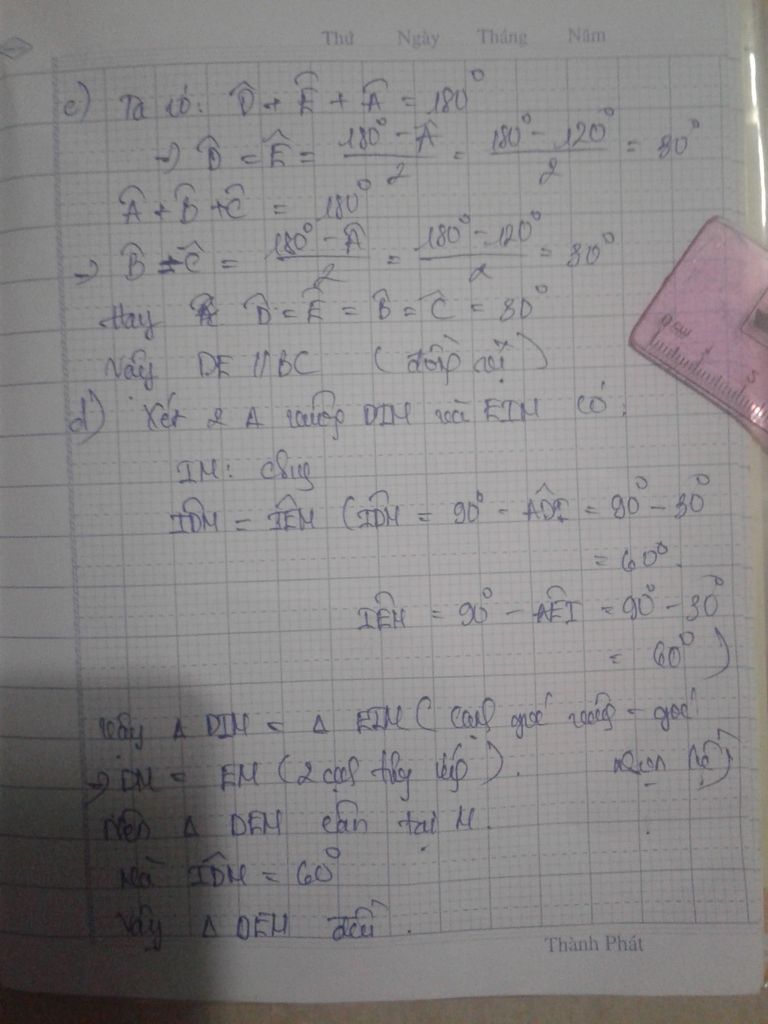 Thứ Ngày Tháng Năm
c) Ta có: D̂ + Ê + Â = 180°
=> D̂ = Ê = (180° - Â)/2 = (180° - 120°)/2 = 30°
Â + B̂ + Ĉ = 180°
=> B̂ = Ĉ = (180° - Â)/2 = (180° - 120°)/2 = 30°
Hay D̂ = Ê = B̂ = Ĉ = 30°
Vậy DE // BC (
d) Xét 2 Δ vuông DIM và EIM có:
IM: chung
IDM = IEM (IDM = 90° - ADI = 90° - 30°
= 60°.
IEM = 90° - AEI = 90° - 30°
= 60°)
Vậy Δ DIM = Δ EIM (cạnh góc vuông - góc
nhọn kề)
=> DM = EM (2 cạnh).
Nên Δ DEM cân tại M.
Mà IDM = 60°
Vậy Δ DEM đều.
Thành Phát